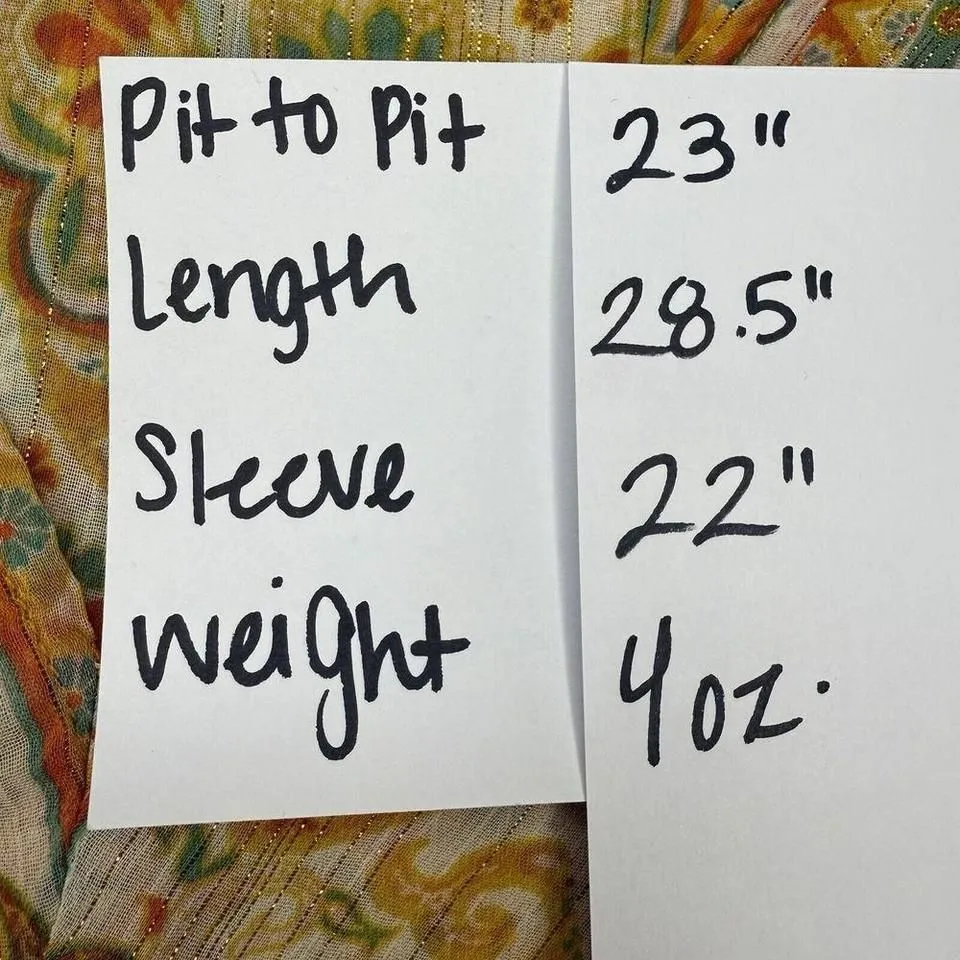 Pit to Pit 23"
Length 28.5"
Sleeve 22"
Weight 4oz.